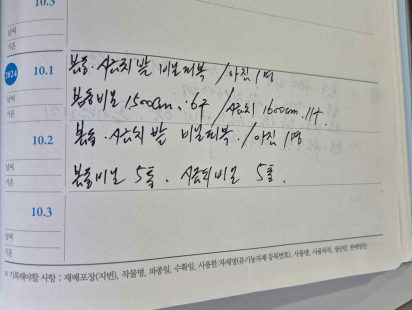 10.3
날씨
기온
2024
10.1
봄동·시금치 밭 비닐피복 / 아진 1명
날씨
기온
봄동비닐 1500cm. 6구 / 시금치 1600cm. 11구.
10.2
봄동. 시금치 밭 비닐피복. / 아진 1명
날씨
기온
봄동비닐 5통. 시금치비닐 5통.
10.3
날씨
기온
※ 기록해야할 사항 : 재배포장(지번), 작물명, 파종일, 수확일, 사용한 자재명(유기농자재 등록번호), 사용량, 사용목적, 생산량, 판매량등